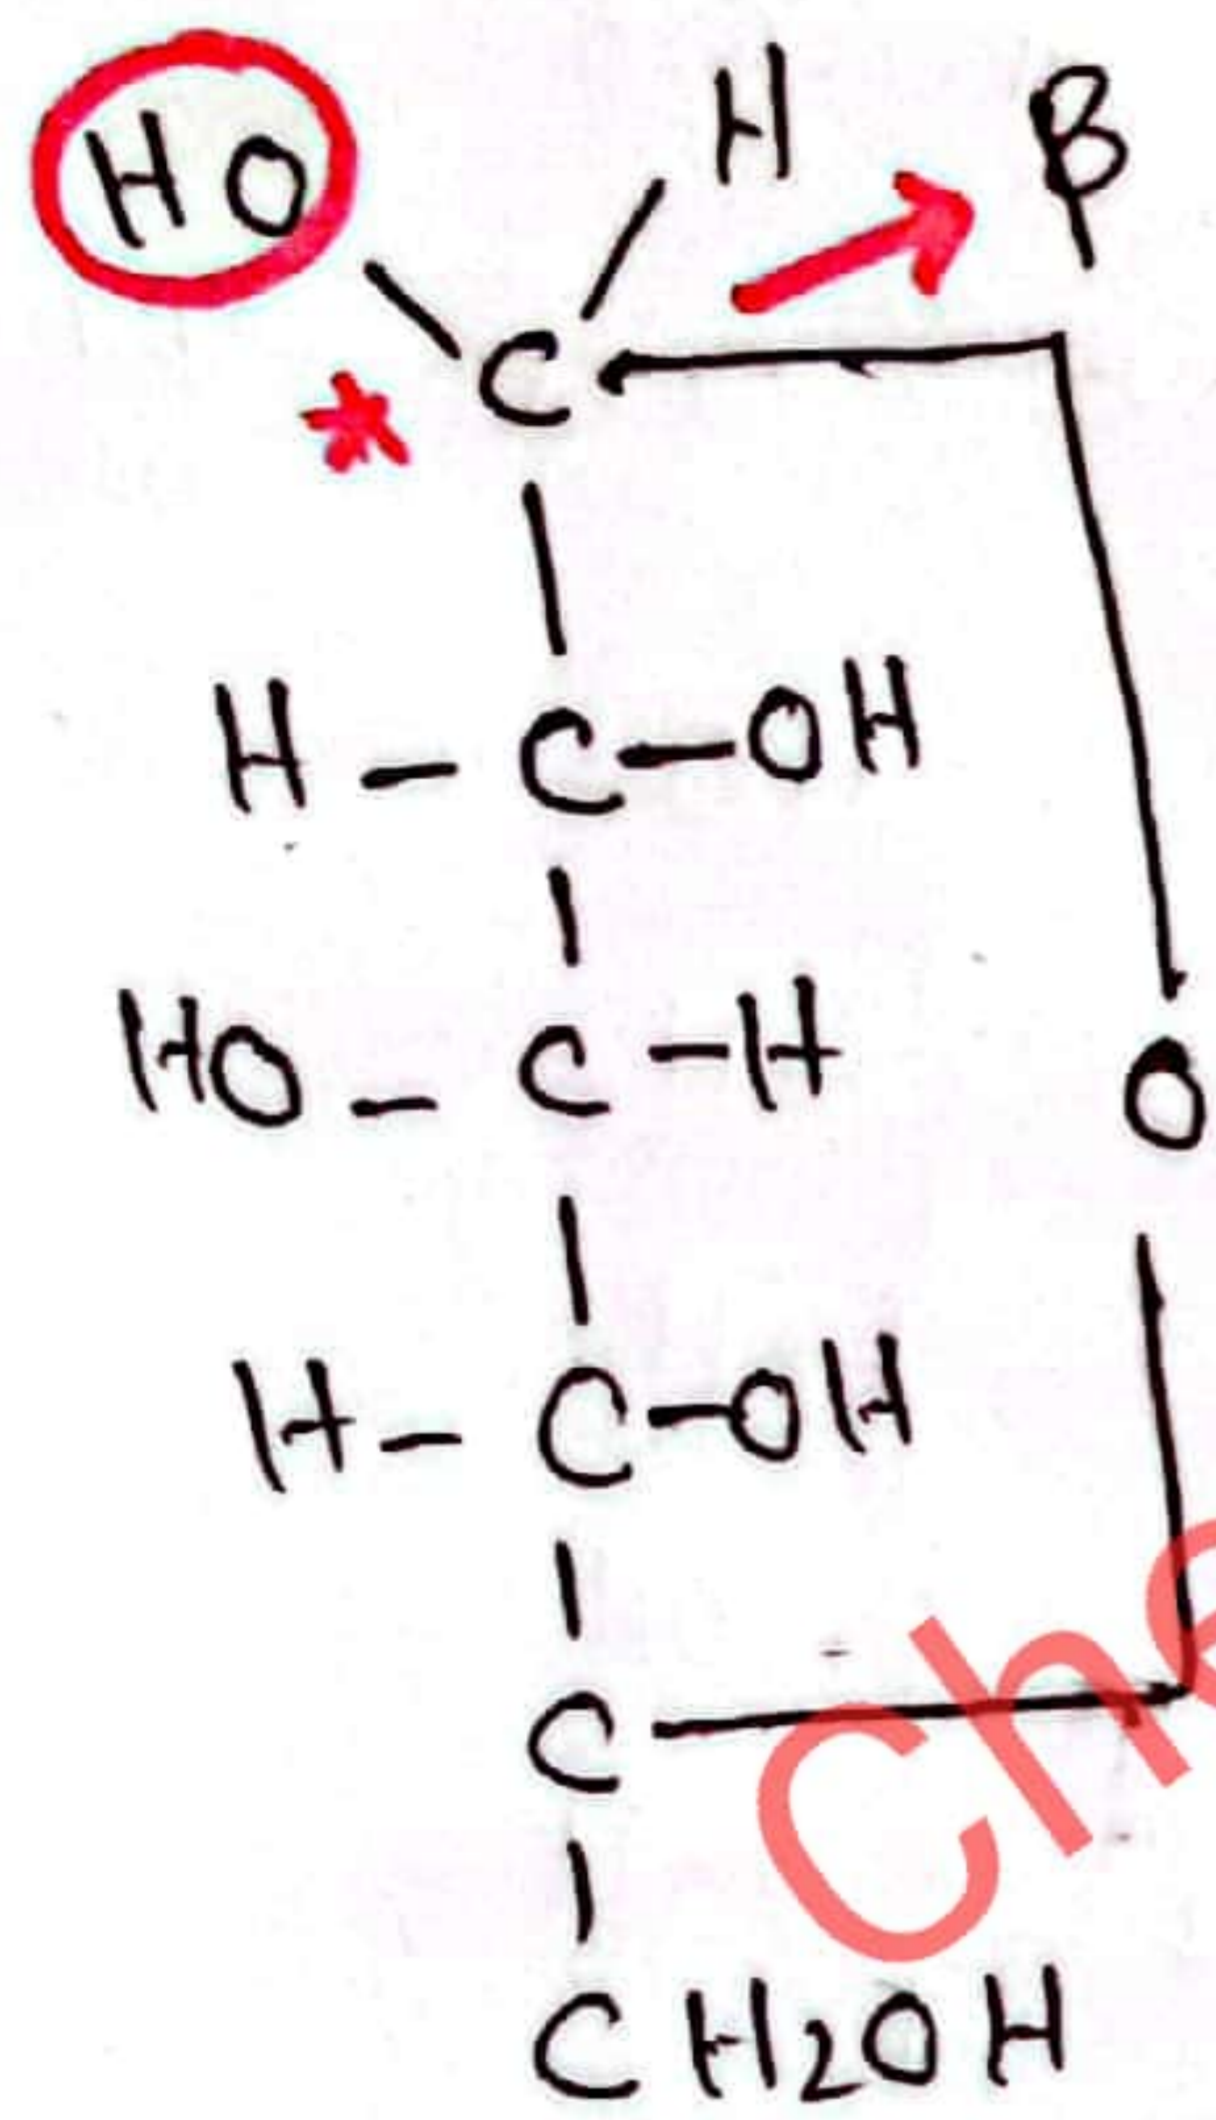 HO H β
* C
H - C - OH
HO - C - H
O
H - C - OH
C
CH2OH
Che